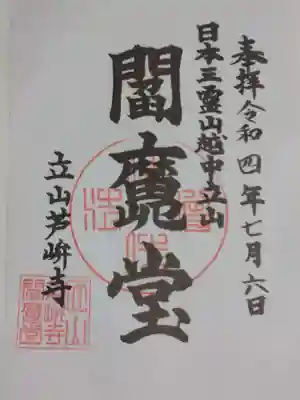 奉拝令和四年七月六日
日本三霊山越中立山
閻魔堂
立山芦峅寺